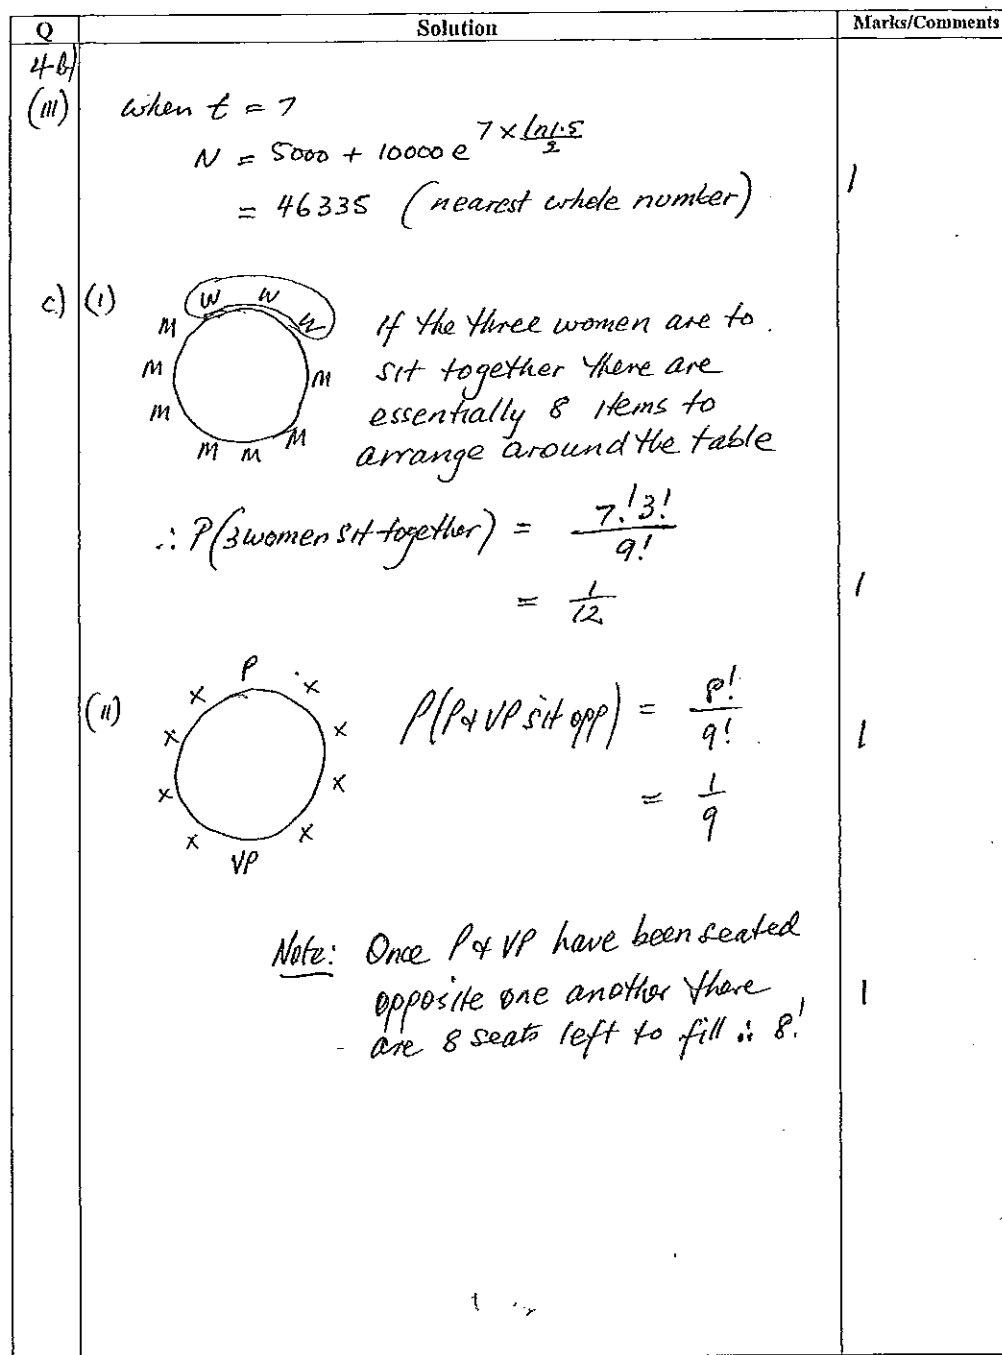 Q Solution Marks/Comments
4 b)
(iii) when t = 7
N = 5000 + 10000 e^{7 × \frac{ln1.5}{2}}
= 46335 (nearest whole number) 1
c) (i)
W W W
M M M M M M M
If the three women are to
sit together there are
essentially 8 items to
arrange around the table
∴ P(3 women sit together) = \frac{7!3!}{9!}
= \frac{1}{12} 1
(ii)
P
x x x x x x x x
VP
P(P & VP sit opp) = \frac{8!}{9!} 1
= \frac{1}{9}
Note: Once P & VP have been seated
opposite one another there 1
are 8 seats left to fill ∴ 8!